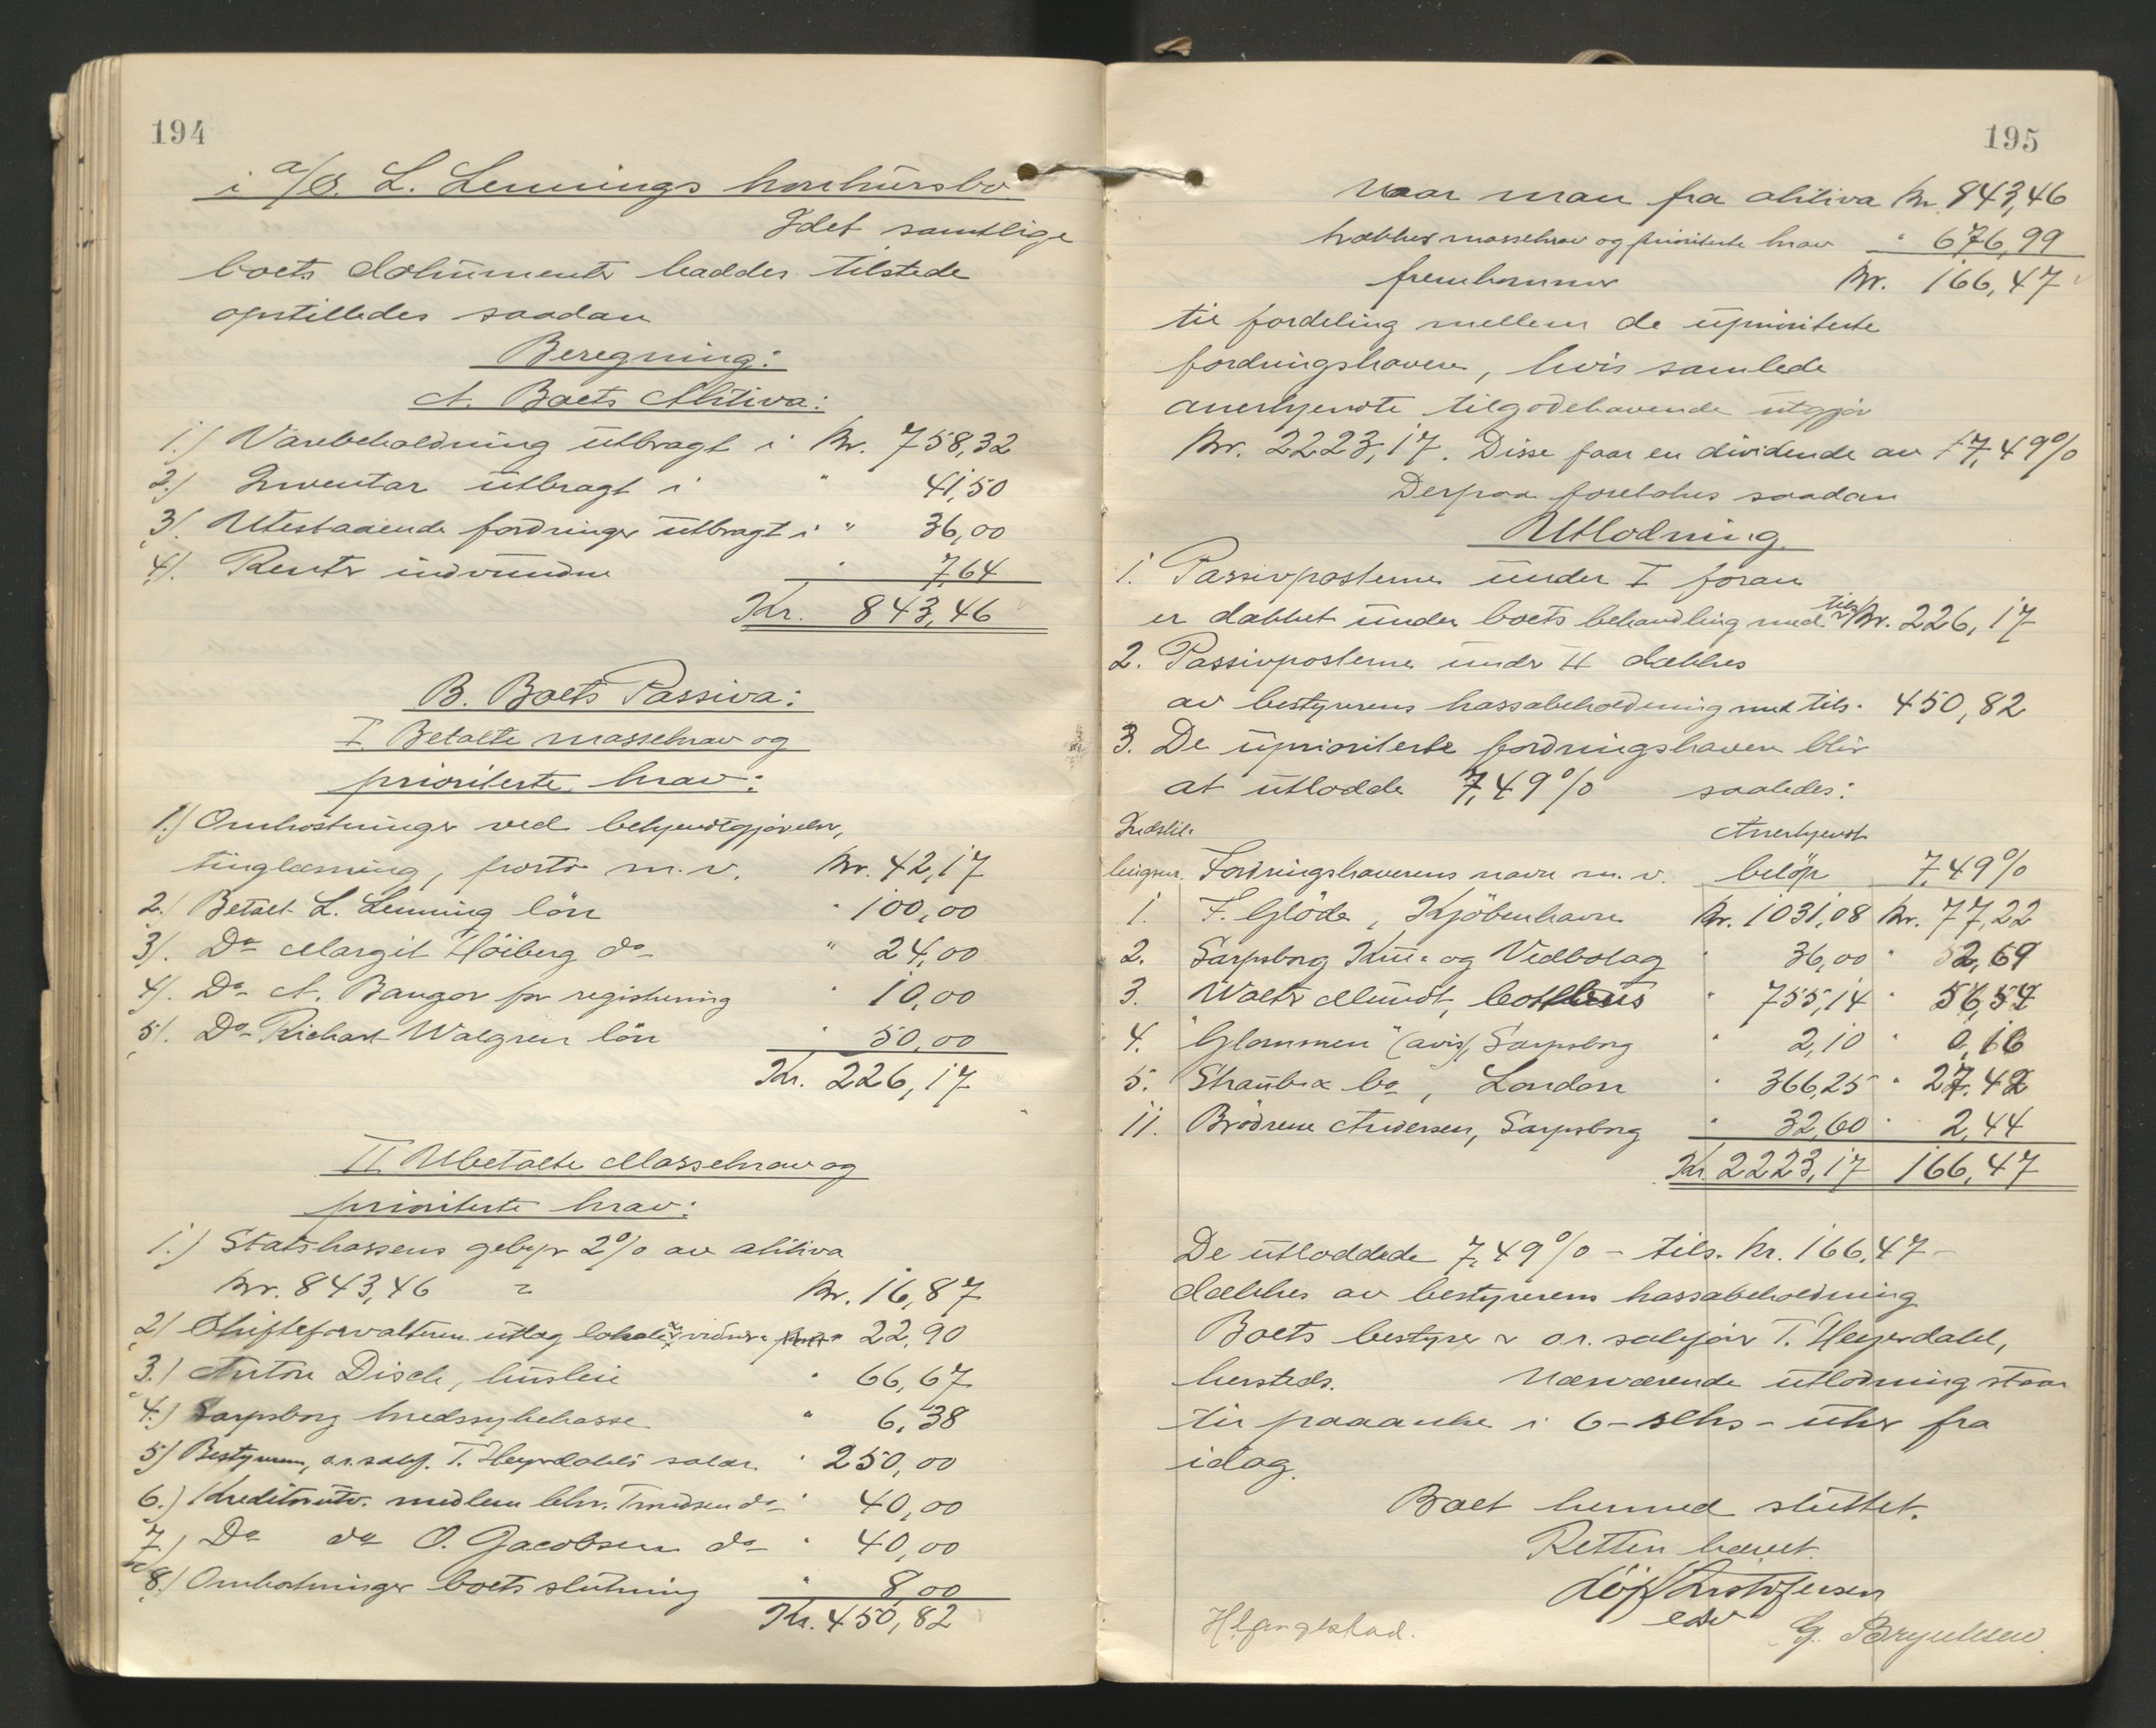 194
i a/S. L. Lennings konkursbo.
Idet samtlige
boets dokumenter haddes tilstede
opstilledes saadan
Beregning:
A. Boets Aktiva:
1.) Varebeholdning utbragt i Kr. 758,32
2.) Inventar utbragt i " 41,50
3). Utestaaende fordringer utbragt i " 36,00
4). Renter indvundne " 7,64
Kr. 843,46
B. Boets Passiva:
I Betalte massekrav og
prioriterte krav:
1.) Omkostninger ved bekjendtgjørelse,
tinglæsning, porto m.v. Kr. 42,17
2.) Betalt L. Lenning lön " 100,00
3). Do Margit Höiberg do " 24,00
4). Do A. Bangor for registrering " 10,00
5). Do Richart Walgren lön " 50,00
Kr. 226,17
II Ubetalte Massekrav og
prioriterte krav:
1.) Statskassens gebyr 2% av aktiva
Kr. 843,46 = Kr. 16,87
2) Skifteforvalteren utlæg lokale vidner " 22,90
3.) Anton Disch, husleie " 66,67
4.) Sarpsborg kredssykekasse " 6,38
5) Bestyreren, o.r.sakf. T. Heyerdahls salær " 250,00
6.) Kreditorutv. medlem Knudsen do " 40,00
7.) Do do O. Jacobsen do " 40,00
8.) Omkostninger boets slutning " 8,00
Kr. 450,82
195
Naar man fra aktiva Kr. 843,46
trækker massekrav og prioriterte krav " 676,99
fremkommer Kr. 166,47
til fordeling mellem de uprioriterte
fordringshavere, hvis samlede
anerkjendte tilgodehavende utgjør
Kr. 2223,17. Disse faar en dividende av 7,49%
Derpaa foretokes saadan
Utlodning
1. Passivposterne under I foran
er dækket under boets behandling med tils. Kr. 226,17
2. Passivposterne under II dækkes
av bestyrerens kassabeholdning med tils. 450,82
3. De uprioriterte fordringshavere blir
at utlodde 7,49% saaledes:
Indstil- Anerkjendt
lingsnr. Fordringshaverens navn m.v. beløp 7,49%
1. F. Glöde, Kjöbenhavn Kr. 1031,08 Kr. 77,22
2. Sarpsborg Kul- og Vedbolag " 36,00 " 2,69
3. Walter Mundt, Cottbus " 755,14 " 56,54
4. "Glommen" (avis), Sarpsborg " 2,10 " 0,16
5. Straub & Co, London " 366,25 " 27,42
11. Brödrene Andersen, Sarpsborg " 32,60 " 2,44
Kr. 2223,17 166,47
De utloddede 7,49% - tils. Kr. 166,47 -
dækkes av bestyrerens kassabeholdning
Boets bestyrer er o.r. sakfører T. Heyerdahl,
hersteds. Nærværende utlodning staar
til paaanke i 6 - seks - uker fra
idag.
Boet hermed sluttet.
Retten hævet.
Leif Kristofersen
edv
H. Grangstad. G. Bryntesen